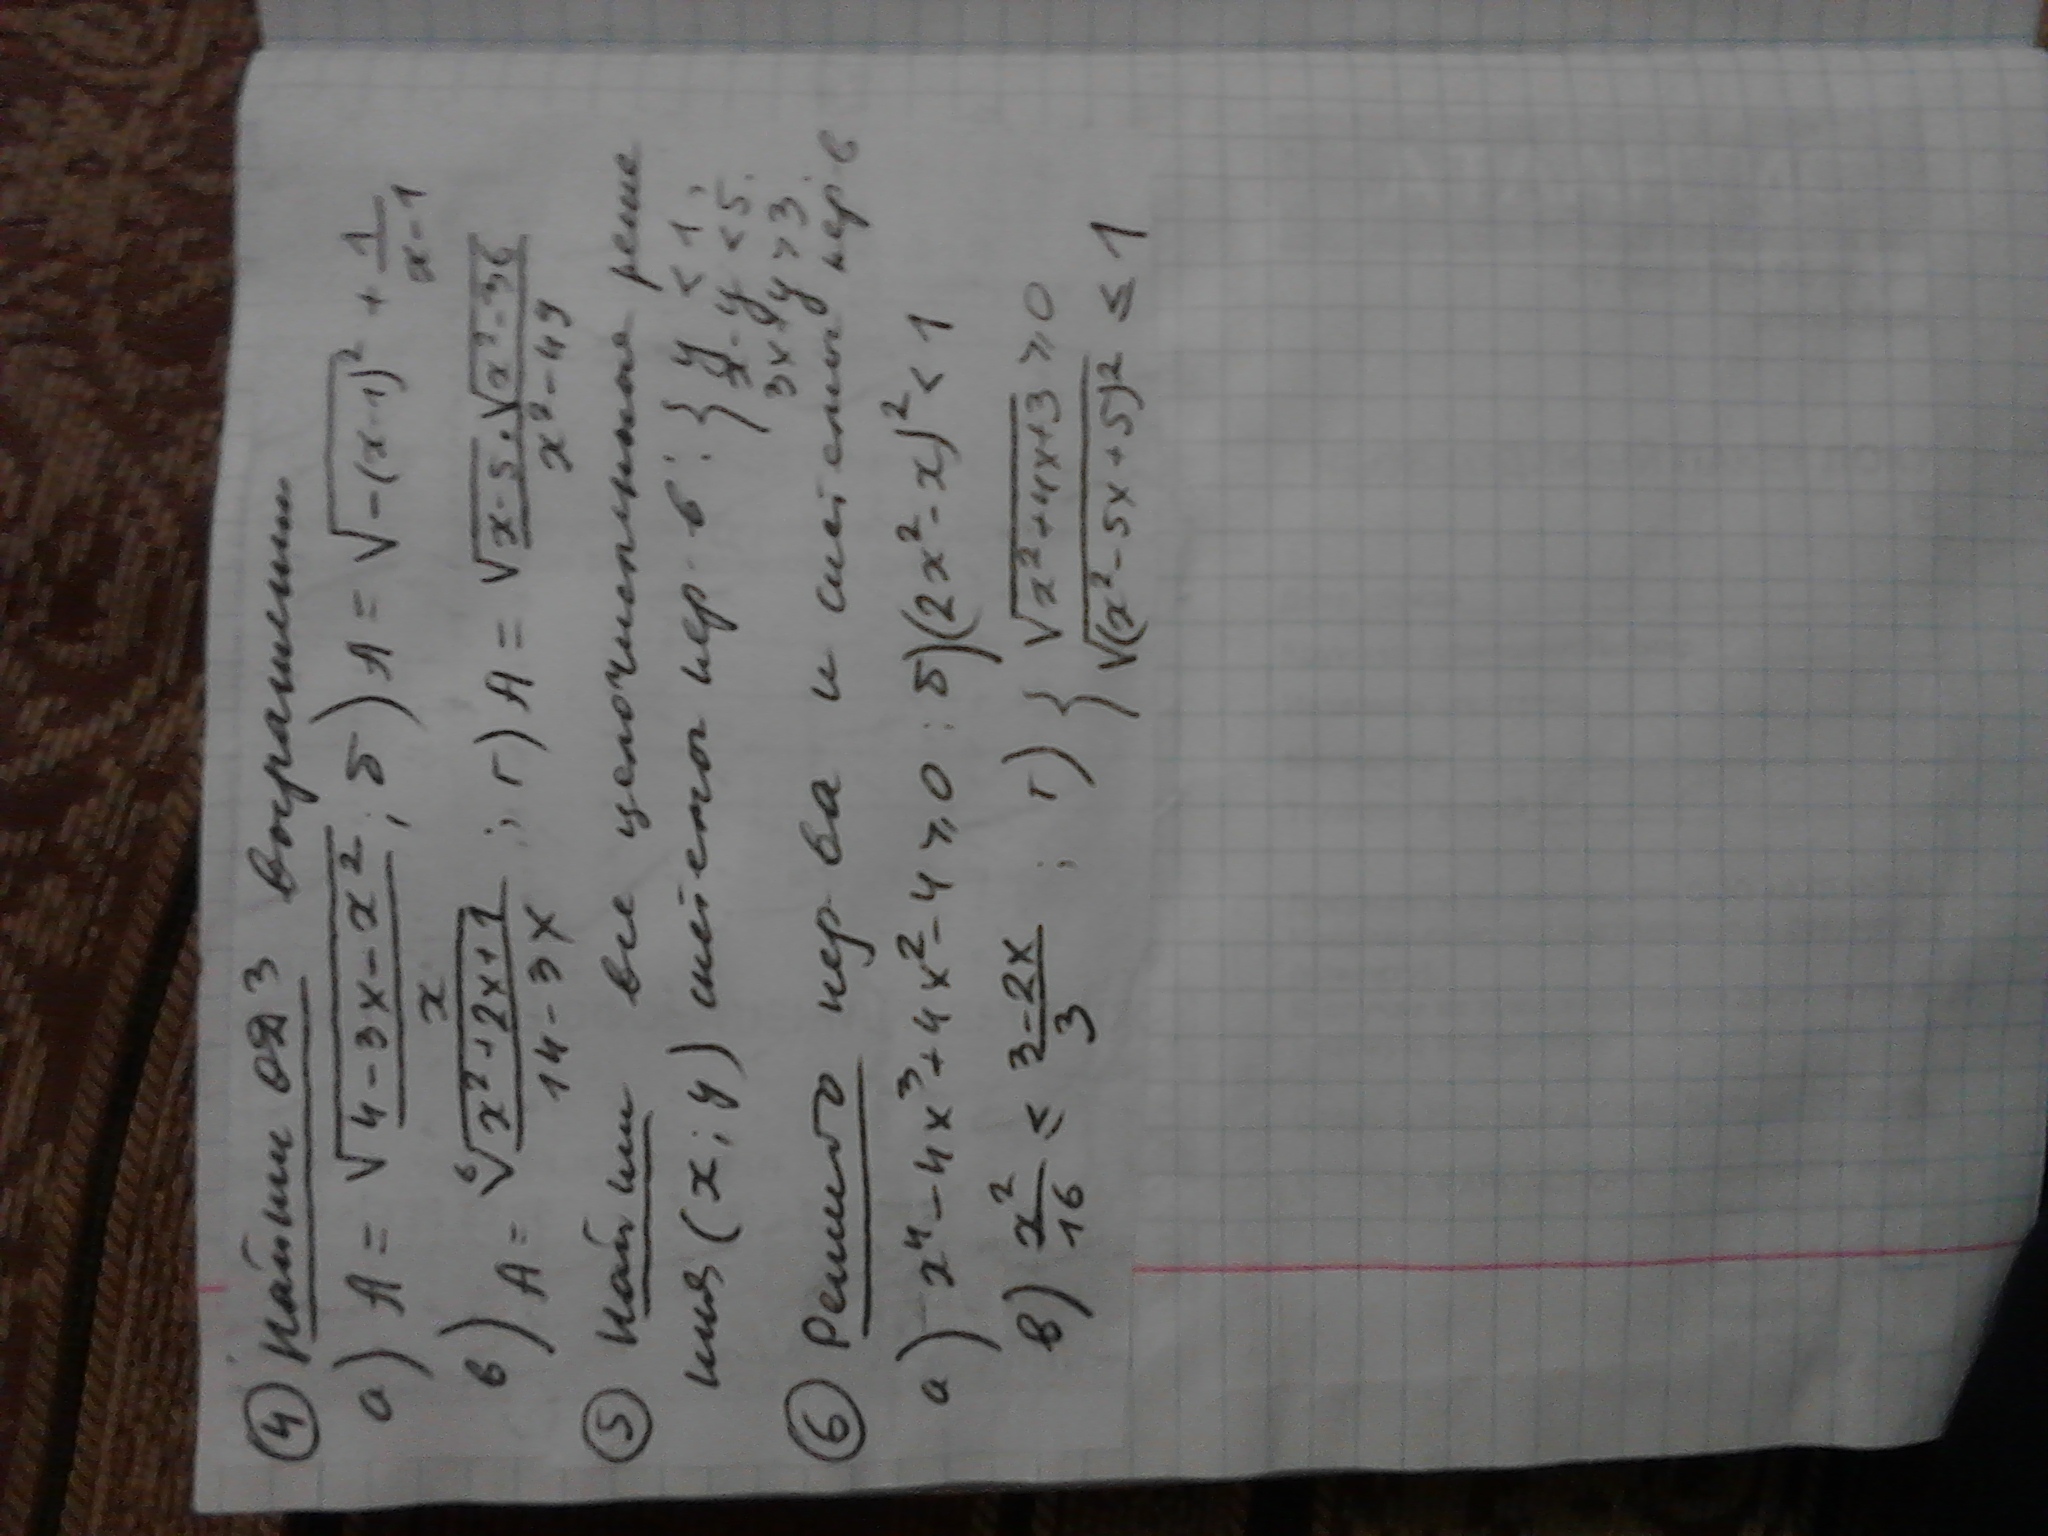 ④ Найти ОДЗ выражений
а) A = √(4-3x-x²)/x ; б) A = √(-(x-1)²) + 1/(x-1)
в) A = ⁶√(x²+2x+1)/(14-3x) ; г) A = √(x-5)·√(x²-36)/(x²-49)
⑤ Найти все целочисленные реше
ния (x; y) системы нер-в: { y < 1,
x-y < 5.
3x+y > 3.
⑥ Решить нер-ва и системы нер-в
а) x⁴-4x³+4x²-4 ⩾ 0 : б) (2x²-x)² < 1
в) x²/16 ≤ (3-2x)/3 ; г) { √(x²+4x+3) ⩾ 0
√((x²-5x+5)²) ≤ 1